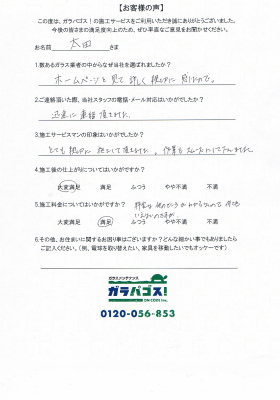 【お客様の声】
この度は、ガラパゴス！の施工サービスをご利用いただき誠にありがとうございました。
今後の皆さまの満足度向上のため、ぜひ率直なご意見をお聞かせください。
お名前 太田 さま
1.数あるガラス業者の中からなぜ当社を選ばれましたか？
ホームページを見て 詳しく 親切に 感じたので。
2.ご連絡頂いた際、当社スタッフの電話・メール対応はいかがでしたか？
迅速に 連絡 頂きました
3.施工サービスマンの印象はいかがでしたか？
とても 親切に 対応して頂きました。作業もスムーズにして下さいました。
4.施工後の仕上がりについてはいかがですか？
大変満足 満足 ふつう やや不満 不満
5.施工料金についてはいかがですか？
大変満足 満足 ふつう やや不満 不満
6.その他、お住まいに関するお困り事はございますか？どんな細かい事でもありましたら
ご記入ください。(例、電球を取り替えたい、家具を移動したいでもオッケーです)
ガラスメンテナンス
ガラパゴス！
0120-056-853